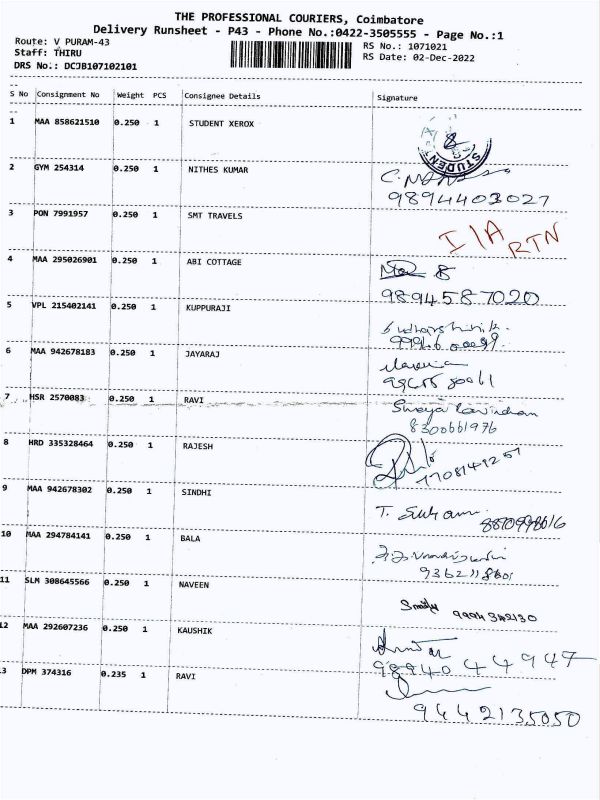 THE PROFESSIONAL COURIERS, Coimbatore
Delivery Runsheet - P43 - Phone No.:0422-3505555 - Page No.:1
Route: V PURAM-43
RS No.: 1071021
Staff: THIRU
RS Date: 02-Dec-2022
DRS No.: DCJB107102101
S No Consignment No Weight PCS Consignee Details Signature
1 MAA 858621510 0.250 1 STUDENT XEROX
STUDENT
2 GYM 254314 0.250 1 NITHES KUMAR
9894403027
3 PON 7991957 0.250 1 SMT TRAVELS
I/A RTN
4 MAA 295026901 0.250 1 ABI COTTAGE
9894587020
5 VPL 215402141 0.250 1 KUPPURAJI
6 MAA 942678183 0.250 1 JAYARAJ
7 HSR 2570083 0.250 1 RAVI
8300661976
8 HRD 335328464 0.250 1 RAJESH
9 MAA 942678302 0.250 1 SINDHI
10 MAA 294784141 0.250 1 BALA
11 SLM 308645566 0.250 1 NAVEEN
12 MAA 292607236 0.250 1 KAUSHIK
9894044947
3 DPM 374316 0.235 1 RAVI
9442135050